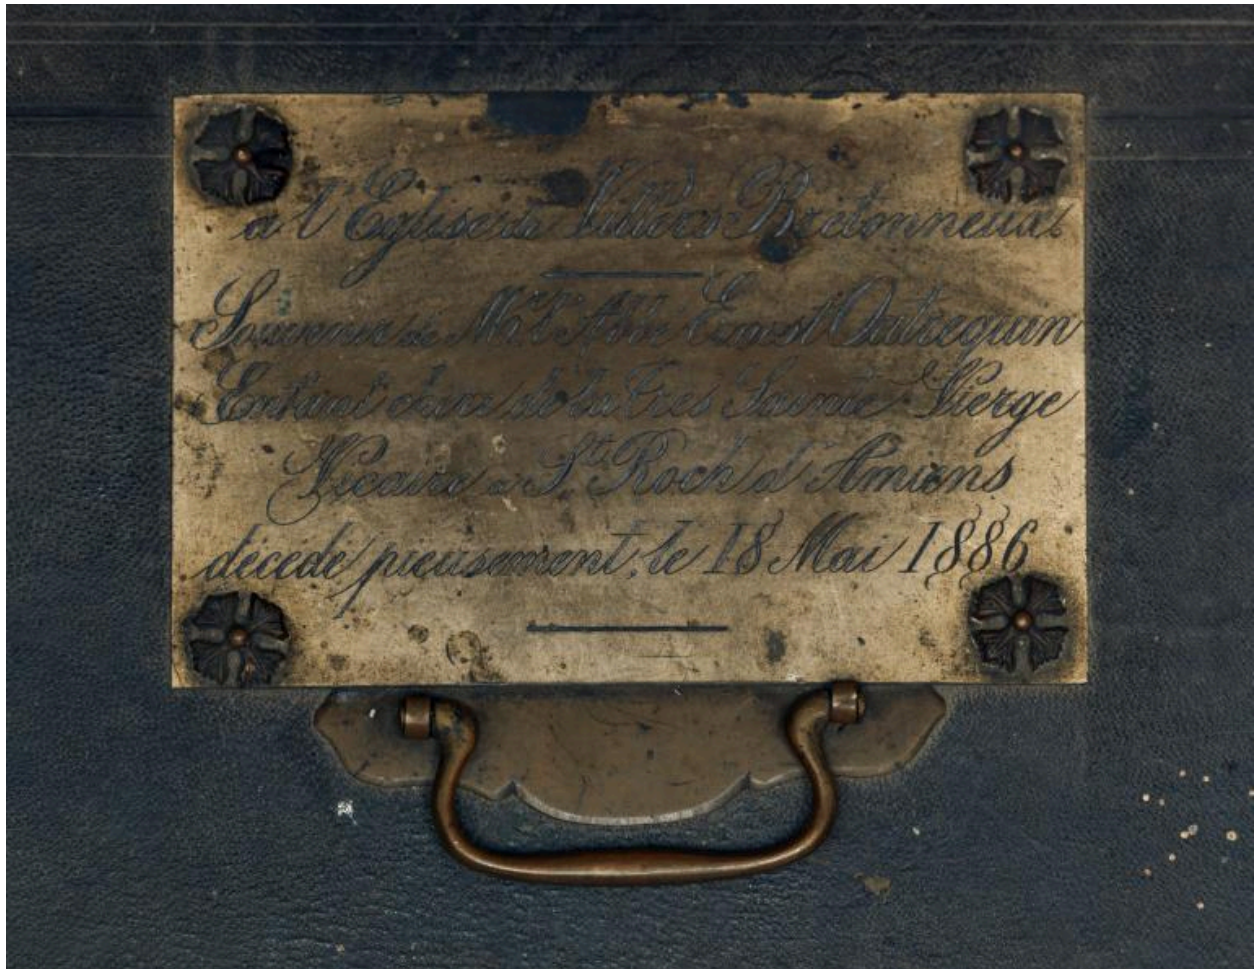 à l'Eglise de Villers-Bretonneux
Souvenir de Mr l'Abbé Ernest Outrequin
Enfant chéri de la Très Sainte Vierge
Vicaire à St. Roch d'Amiens
décédé pieusement, le 18 Mai 1886